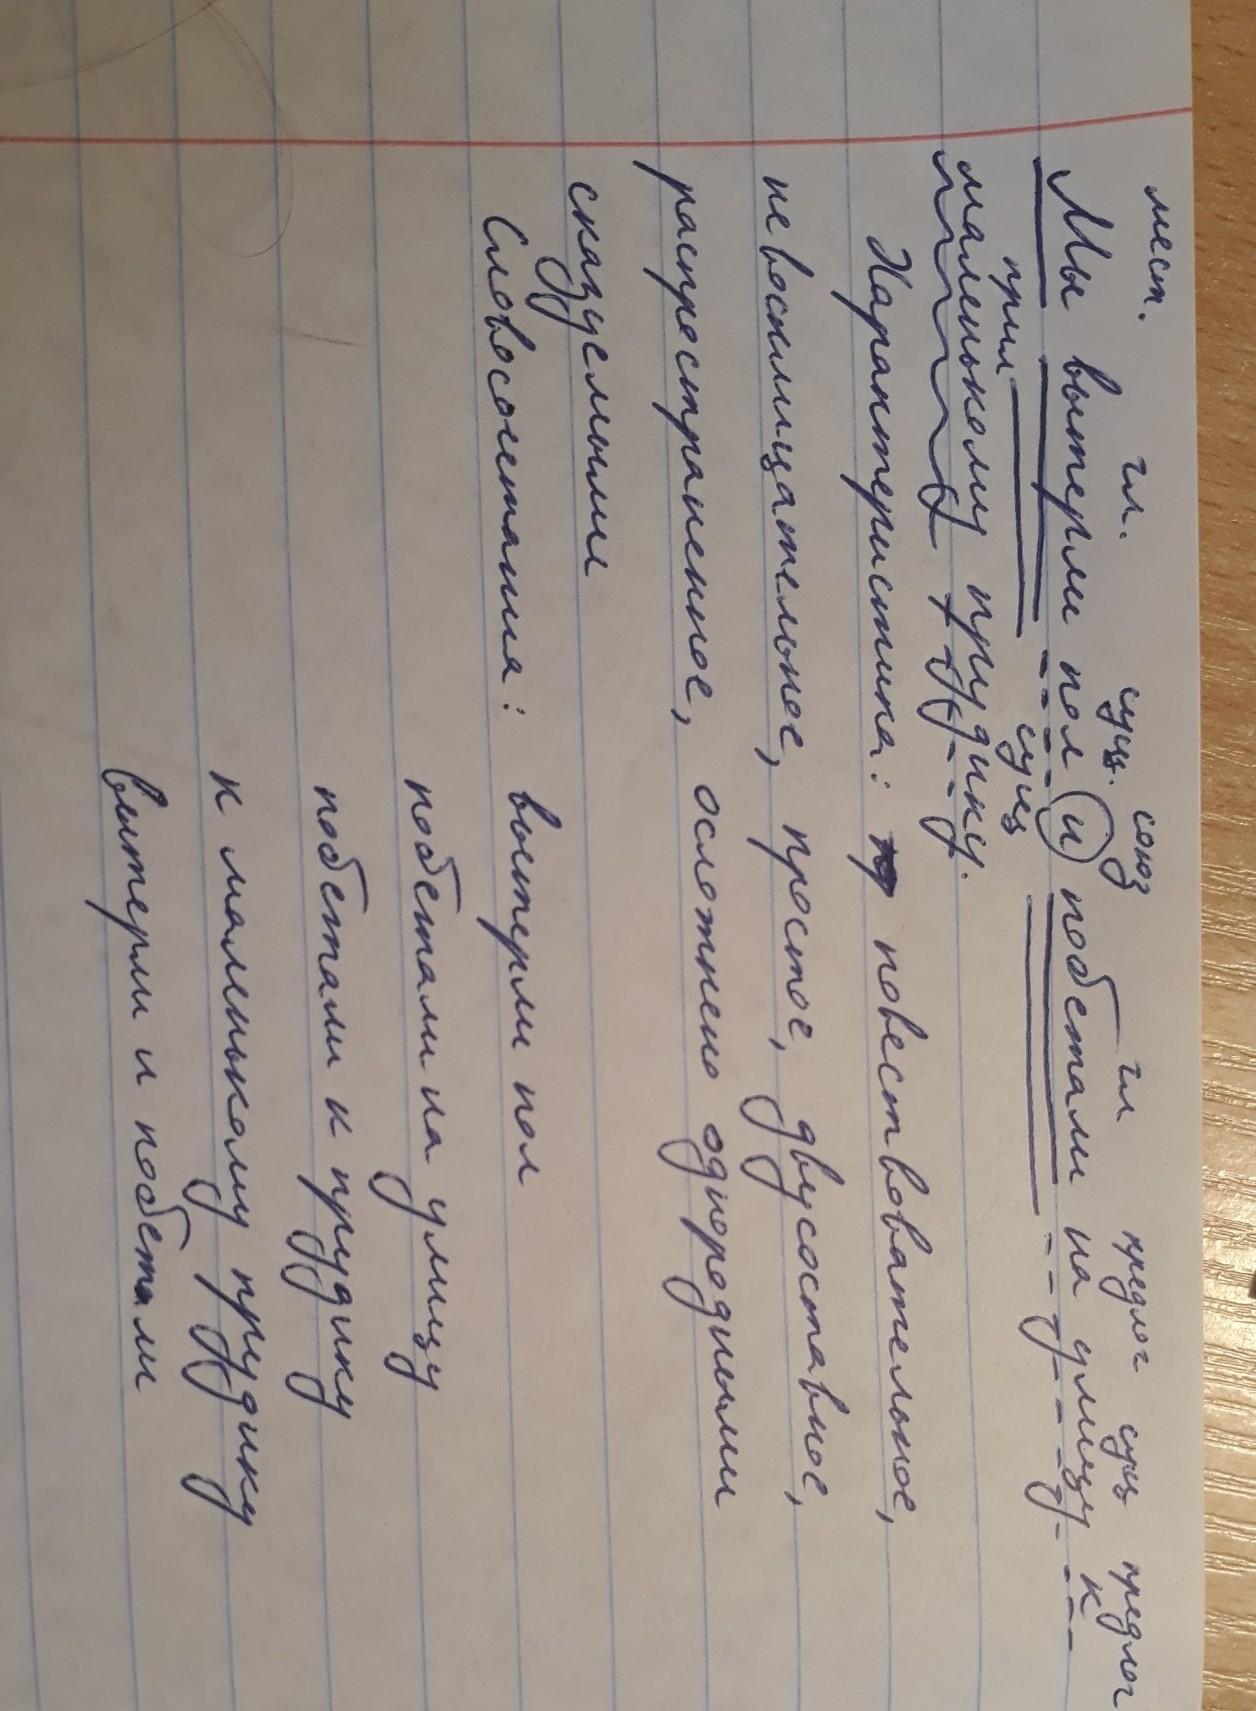 мест. гл. сущ. союз гл предлог сущ предлог
Мы вытерли пол и побежали на улицу к
прил сущ
маленькому прудику.
Характеристика: повествовательное,
невосклицательное, простое, двусоставное,
распространенное, осложнено однородными
сказуемыми
Словосочетания: вытерли пол
побежали на улицу
побежали к прудику
к маленькому прудику
вытерли и побежали